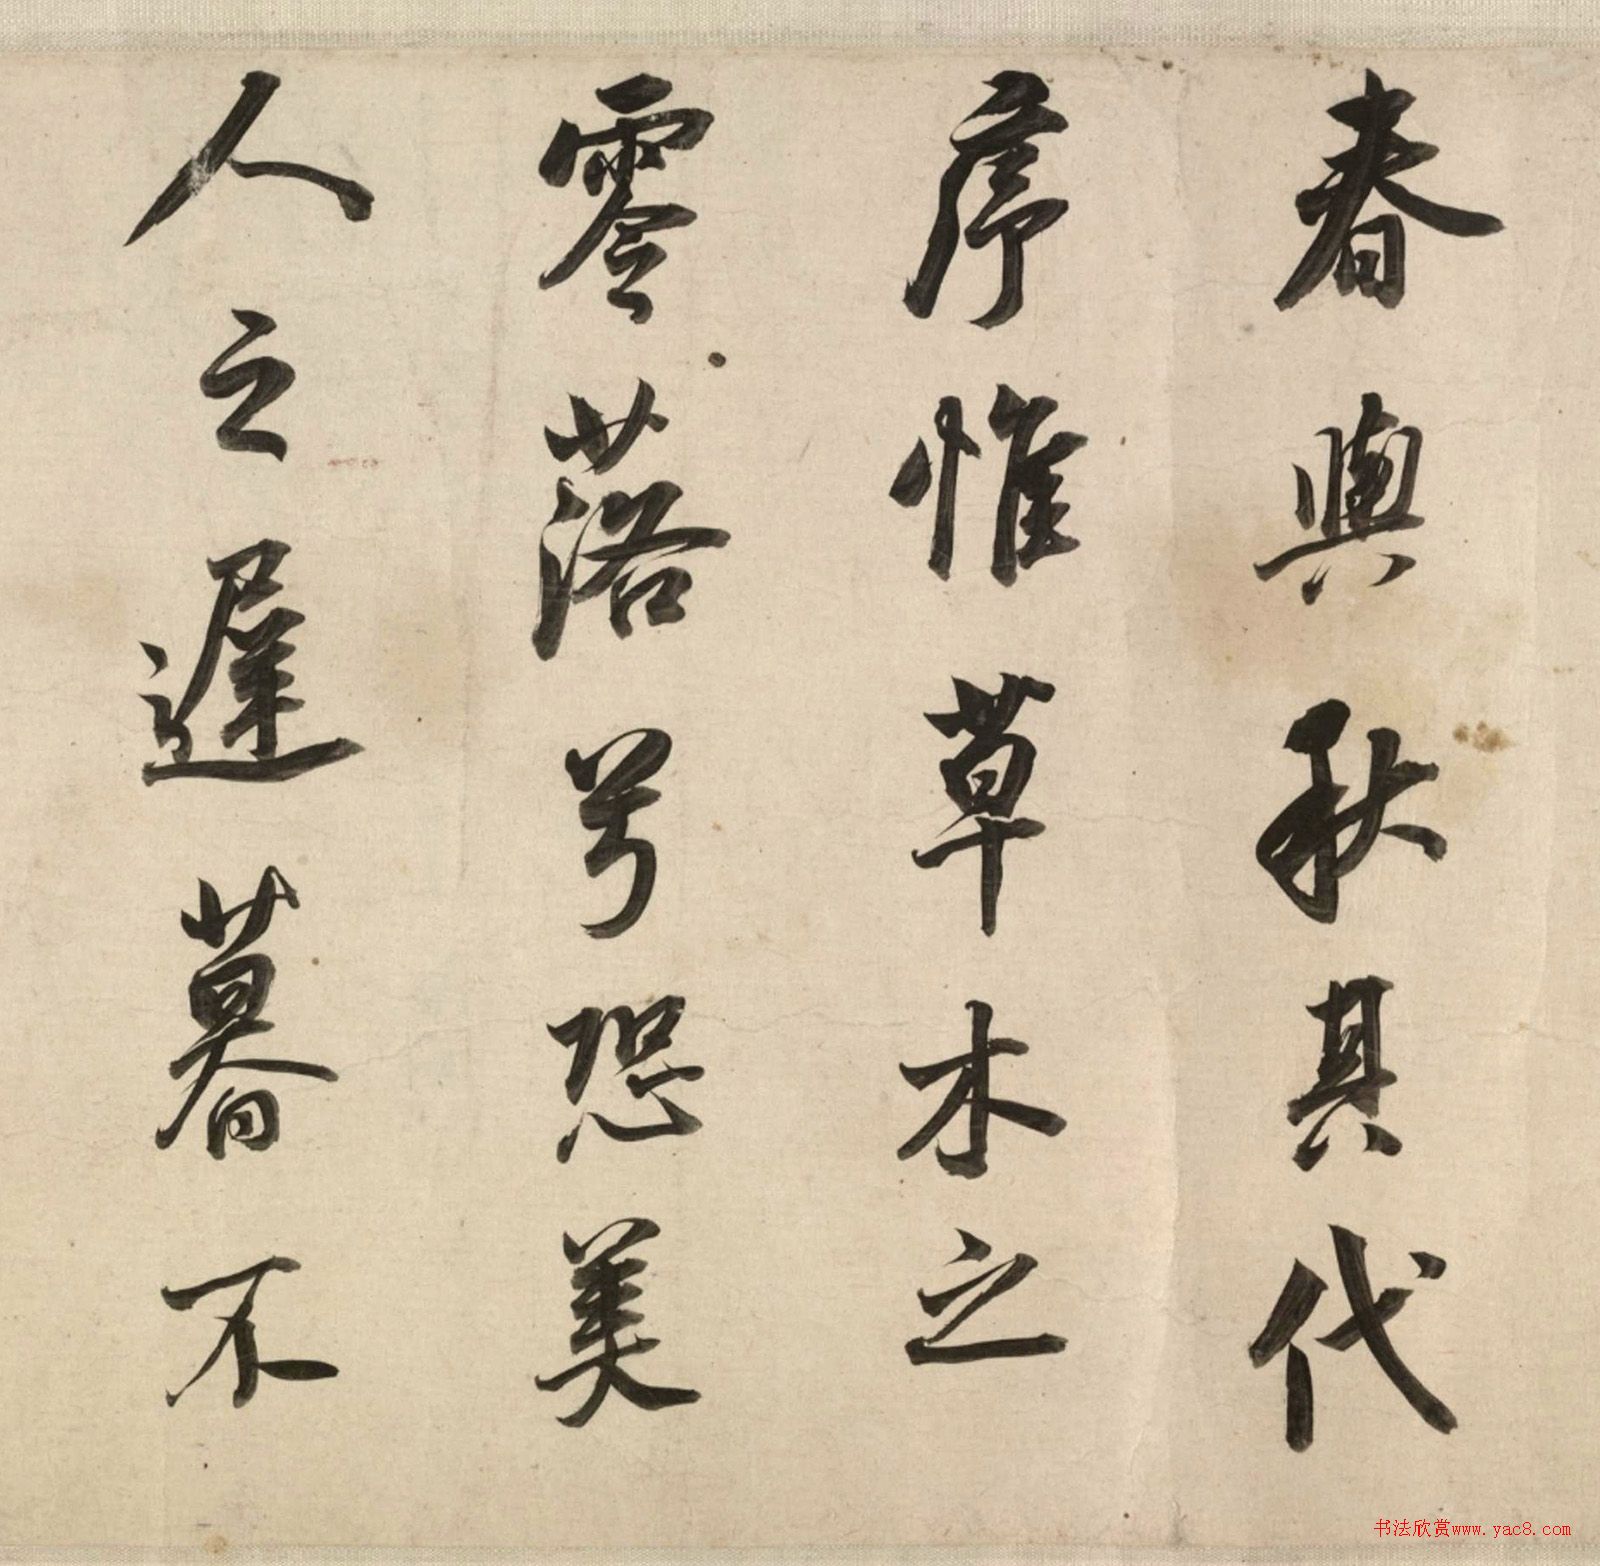 春與秋其代
序惟草木之
零落兮恐美
人之遲暮不
书法欣赏www.yac8.com